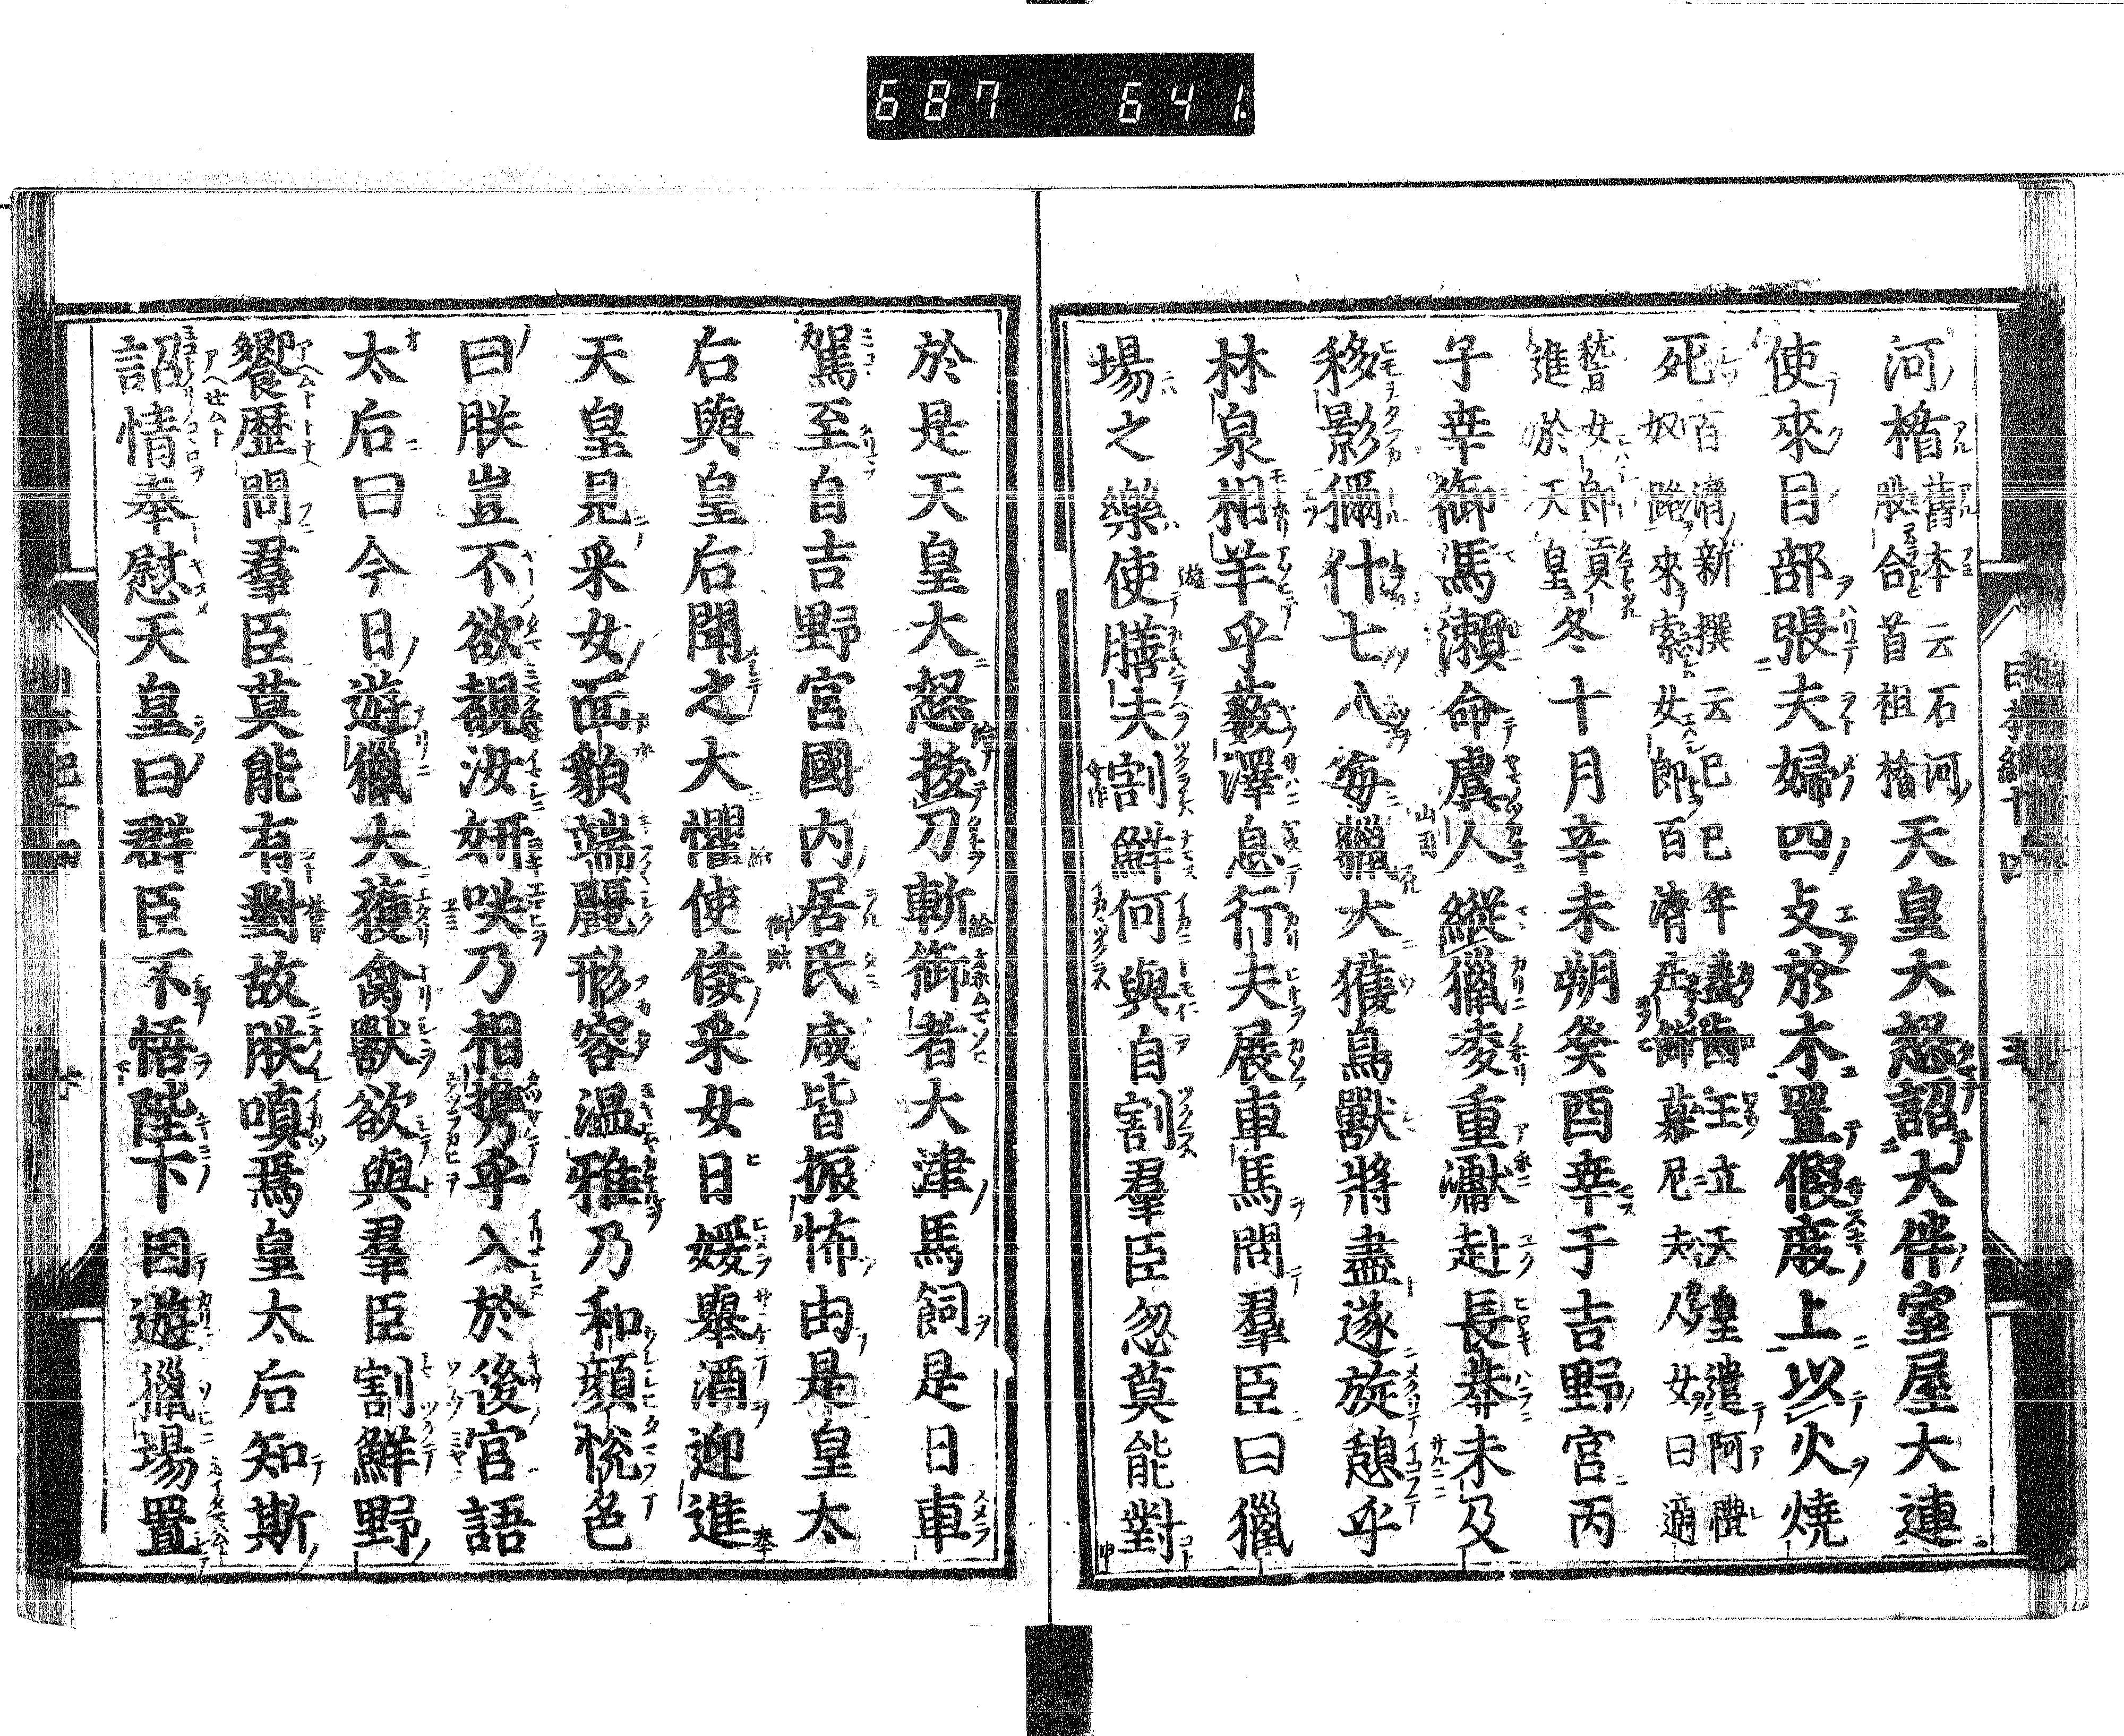 687 641
河楯舊本云石河股合首祖楯天皇大怒詔大伴室屋大連
使來目部張夫婦四支於木置假庪上以火燒
死百濟新撰云己巳年蓋鹵王立天皇遣阿禮奴跪來索女郎百濟莊飾慕尼夫人女曰適
稽女郎貢進於天皇冬十月辛未朔癸酉幸于吉野宮丙
子幸御馬瀨命虞人縱獵凌重巘赴長莽未及
移影獮什七八每獵大獲鳥獸將盡遂旋憩乎
林泉相羊乎藪澤息行夫展車馬問羣臣曰獵
場之樂使膳夫割鮮何與自割羣臣忽莫能對
於是天皇大怒拔刀斬御者大津馬飼是日車
駕至自吉野宮國內居民咸皆振怖由是皇太
后與皇后聞之大懼使倭采女日媛舉酒迎進
天皇見采女面貌端麗形容溫雅乃和顏悅色
曰朕豈不欲覩汝姸咲乃相携乎入於後宮語
太后曰今日遊獵大獲禽獸欲與羣臣割鮮野
饗歷問羣臣莫能有對故朕嗔焉皇太后知斯
詔情奉慰天皇曰群臣不悟陛下因遊獵場置